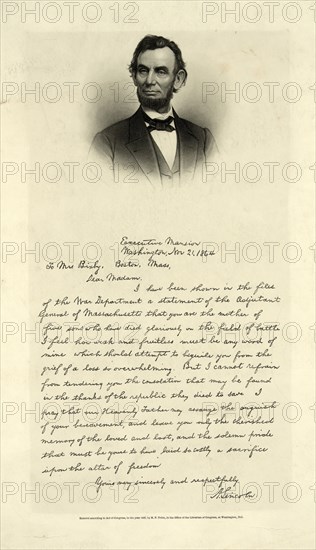 PHOTO12 PHOTO12 PHOTO12
Executive Mansion
Washington, Nov 21, 1864
To Mrs Bixby, Boston, Mass,
Dear Madam,
I have been shown in the files
of the War Department a statement of the Adjutant
General of Massachusetts that you are the mother of
five sons who have died gloriously on the field of battle
I feel how weak and fruitless must be any word of
mine which should attempt to beguile you from the
grief of a loss so overwhelming. But I cannot refrain
from tendering you the consolation that may be found
in the thanks of the republic they died to save. I
pray that our Heavenly Father may assuage the anguish
of your bereavement, and leave you only the cherished
memory of the loved and lost, and the solemn pride
that must be yours to have laid so costly a sacrifice
upon the altar of freedom
Yours very sincerely and respectfully,
A. Lincoln